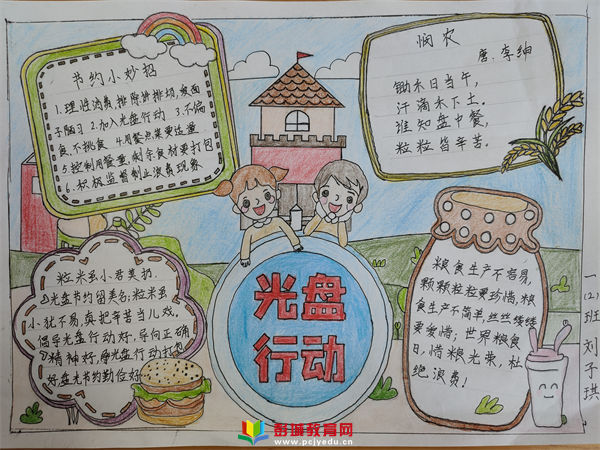 节约小妙招
1.理性消费,排除讲排场,爱面
子陋习 2.加入光盘行动 3.不偏
食,不挑食 4.点菜要适量
5.控制用餐量,剩余食材要打包
6.积极监督制止浪费现象
悯农
唐.李绅
锄禾日当午,
汗滴禾下土。
谁知盘中餐,
粒粒皆辛苦。
粒米虽小君莫扔,
光盘节约留美名;粒米虽
小犹不易,莫把辛苦当儿戏。
倡导光盘行动好,导向正确
精神好,光盘行动打包
好,节约勤俭好
光盘
行动
粮食生产不容易,
颗颗粒粒要珍惜,粮
食生产不简单,丝丝缕缕
要爱惜;世界粮食
日,惜粮光荣,杜
绝浪费!
一(2)班 刘子琪
彭城教育网
www.pcjyedu.cn